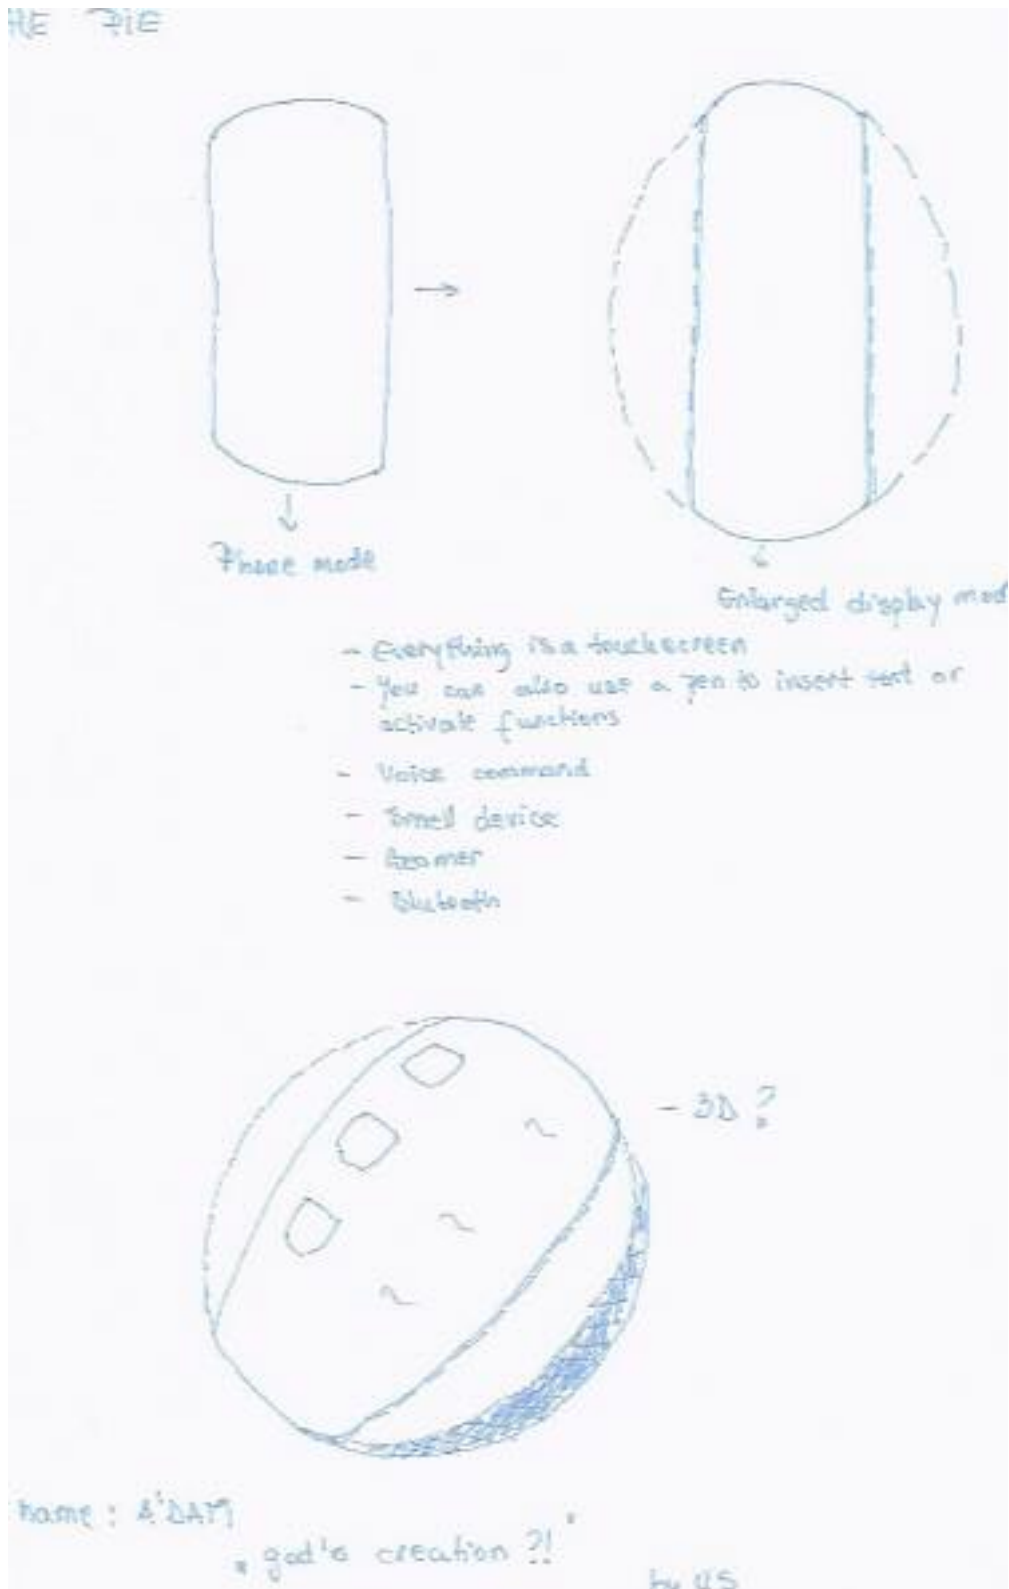 HE PIE
Phone mode
Enlarged display mod
- Everything is a touchscreen
- You can also use a pen to insert text or
activate functions
- Voice command
- Small device
- Beamer
- Blutooth
- 3D ?
name : A'DAM
"god's creation ?!"
by US